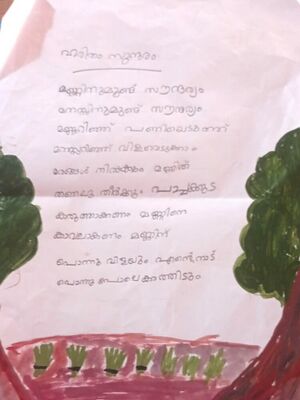 ഹരിതം സുന്ദരം
മണ്ണിനുമുണ്ട് സൗന്ദര്യം
നെല്ലിനുമുണ്ട് സൗന്ദര്യം
മണ്ണറിഞ്ഞ് പണിയെടുത്ത്
മനസ്സറിഞ്ഞ് വിളവെടുക്കാം
മണ്ണിൽ
തണലു തീർക്കും പച്ചക്കുട
കരുത്താകണം മണ്ണിനെ
കാവലാകണം മണ്ണിന്
പൊന്നു വിളയും എന്റെനാട്
പൊന്നുപോലെ കാത്തിടും